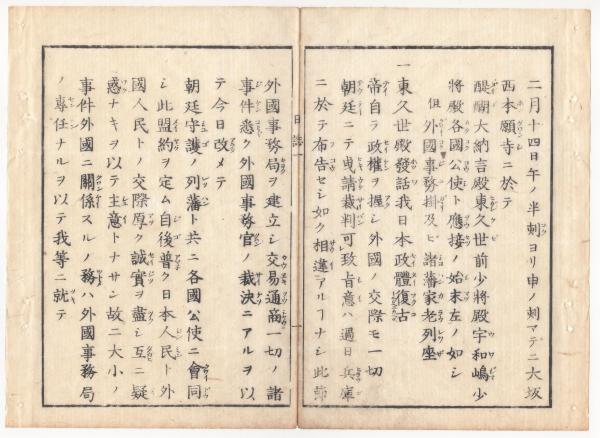 二月十四日午ノ半刻ヨリ申ノ刻マテニ大坂
西本願寺ニ於テ
醍醐大納言殿東久世前少將殿宇和嶋少
將殿各國公使ト應接ノ始末左ノ如シ
但外國事務掛及ビ諸藩家老列座
一東久世殿發話我日本政體復古
帝自ラ政權ヲ握シ外國ノ交際モ一切
朝廷ニテ曳請裁判可致旨意ハ過日兵庫
ニ於テ布告セシ如ク相違アルヿナシ此節
日誌一
外國事務局ヲ建立シ交易通商一切ノ諸
事件悉ク外國事務官ノ裁決ニアルヲ以
テ今日改メテ
朝廷守護ノ列藩ト共ニ各國公使ニ會同
シ此盟約ヲ定ム自後普ク日本人民ト外
國人民トノ交際厚ク誠實ヲ盡シ互ニ疑
惑ナキヲ以テ主意トナサン故ニ大小ノ
事件外國ニ關係スルノ務ハ外國事務局
ノ專任ナルヲ以テ我等ニ就テ